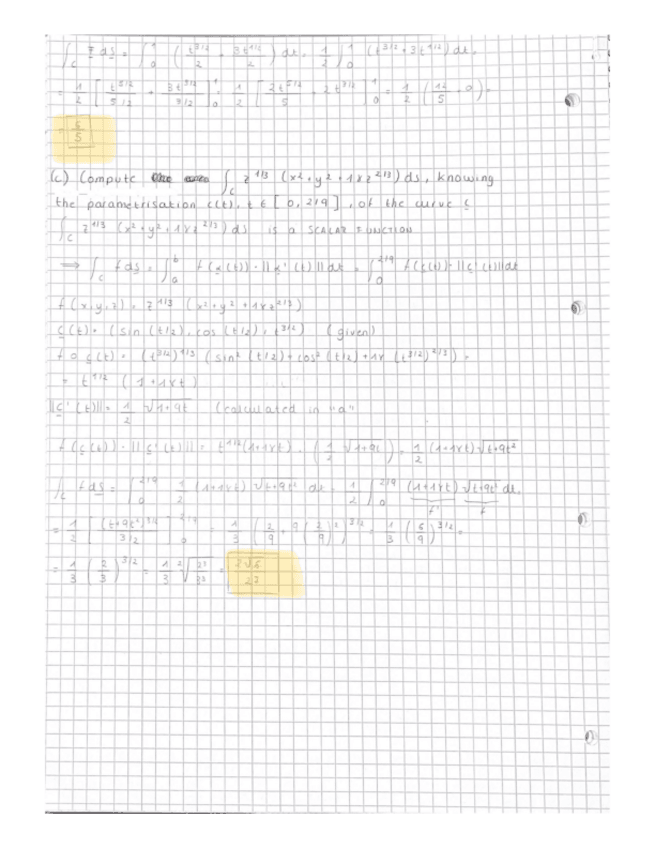 ∫_C F ds = ∫_0^1 (t^{3/2}/2 + 3t^{1/2}/2) dt = 1/2 ∫_0^1 (t^{3/2} + 3t^{1/2}) dt =
= 1/2 [t^{5/2}/(5/2) + 3t^{3/2}/(3/2)]_0^1 = 1/2 [2t^{5/2}/5 + 2t^{3/2}]_0^1 = 1/2 (12/5 - 0) =
= 6/5
(c) Compute ∫_C z^{1/3} (x² + y² + 18z^{2/3}) ds, knowing
the parametrisation c(t), t ∈ [0, 2/9], of the curve C
∫_C z^{1/3} (x² + y² + 18z^{2/3}) ds is a SCALAR FUNCTION
⟹ ∫_C f ds = ∫_a^b f(c(t)) · ||c'(t)|| dt = ∫_0^{2/9} f(c(t)) · ||c'(t)|| dt
f(x,y,z) = z^{1/3} (x² + y² + 18z^{2/3})
c(t) = (sin(t/2), cos(t/2), t^{3/2}) (given)
f ∘ c(t) = (t^{3/2})^{1/3} (sin²(t/2) + cos²(t/2) + 18(t^{3/2})^{2/3}) =
= t^{1/2} (1 + 18t)
||c'(t)|| = 1/2 √(1+9t) (calculated in "a")
f(c(t)) · ||c'(t)|| = t^{1/2}(1+18t) · (1/2 √(1+9t)) = 1/2 (1+18t) √(t+9t²)
∫_C f ds = ∫_0^{2/9} 1/2 (1+18t) √(t+9t²) dt = 1/2 ∫_0^{2/9} (1+18t) √(t+9t²) dt =
f' f
= 1/2 [(t+9t²)^{3/2}/(3/2)]_0^{2/9} = 1/3 (2/9 + 9(2/9)²)^{3/2} = 1/3 (6/9)^{3/2} =
= 1/3 (2/3)^{3/2} = 1/3 ²√(2³/3³) = 2√6/27